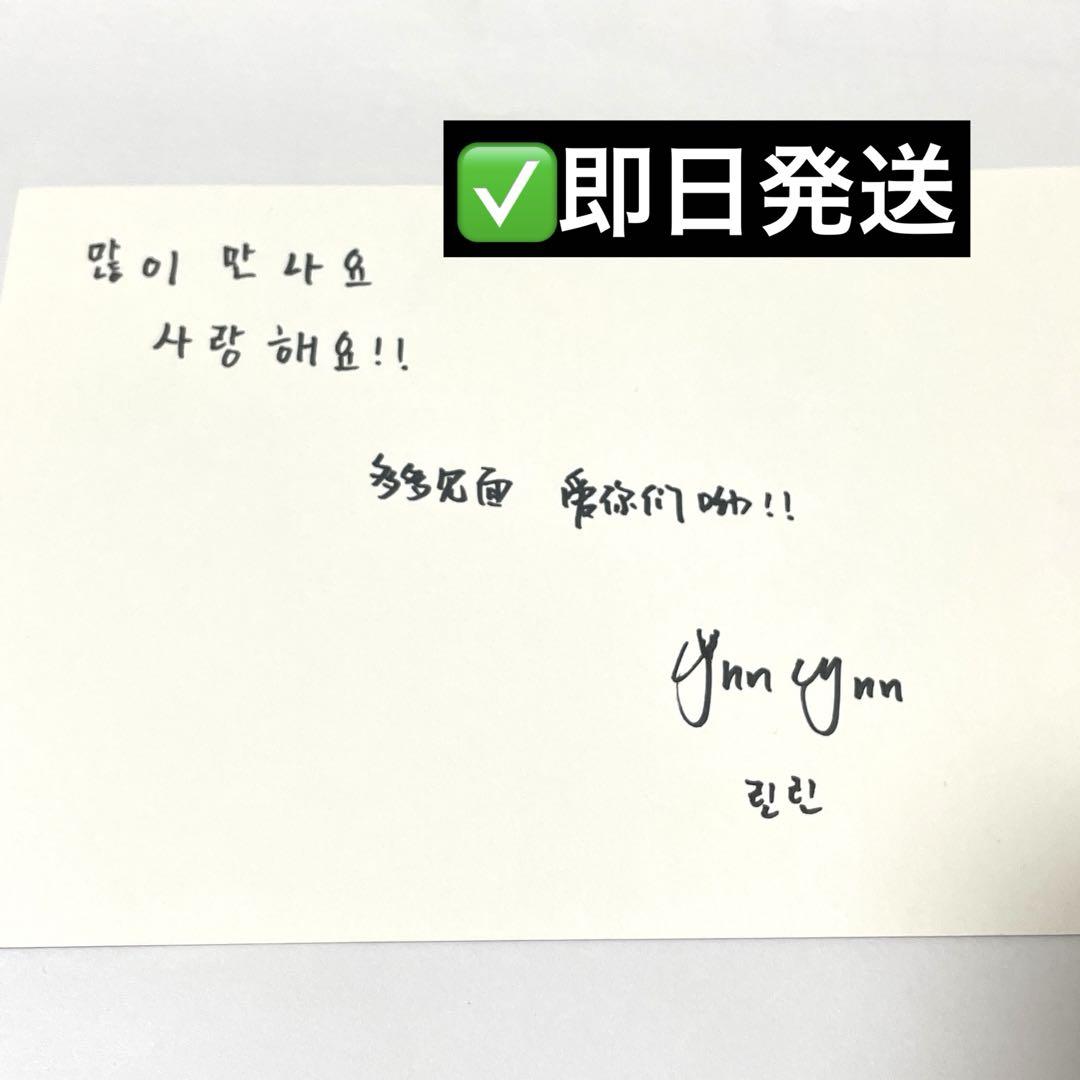 ✅即日発送
많이 만나요
사랑해요!!
多多见面 爱你们呦!!
린린